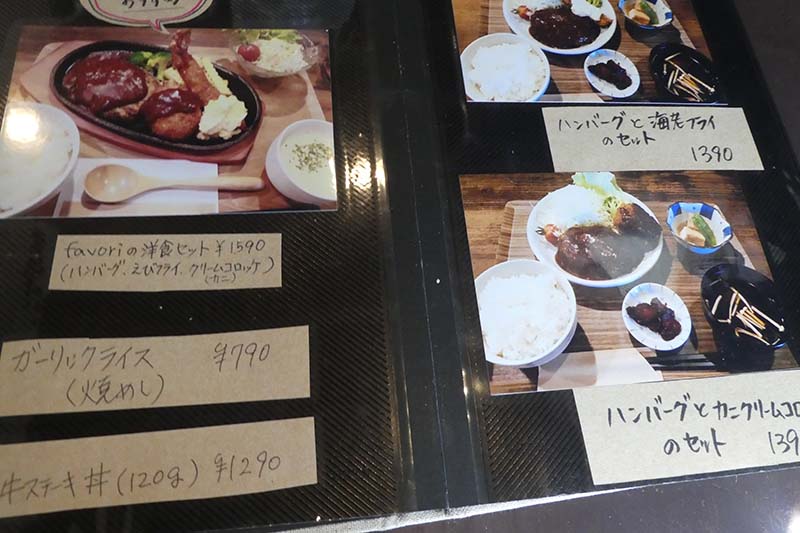 favoriの洋食セット ¥1590
(ハンバーグ、えびフライ、クリームコロッケ)
(カニ)
ガーリックライス ¥790
(焼めし)
牛ステーキ丼(120g) ¥1290
ハンバーグと海老フライ
のセット 1390
ハンバーグとカニクリームコロ
のセット 139